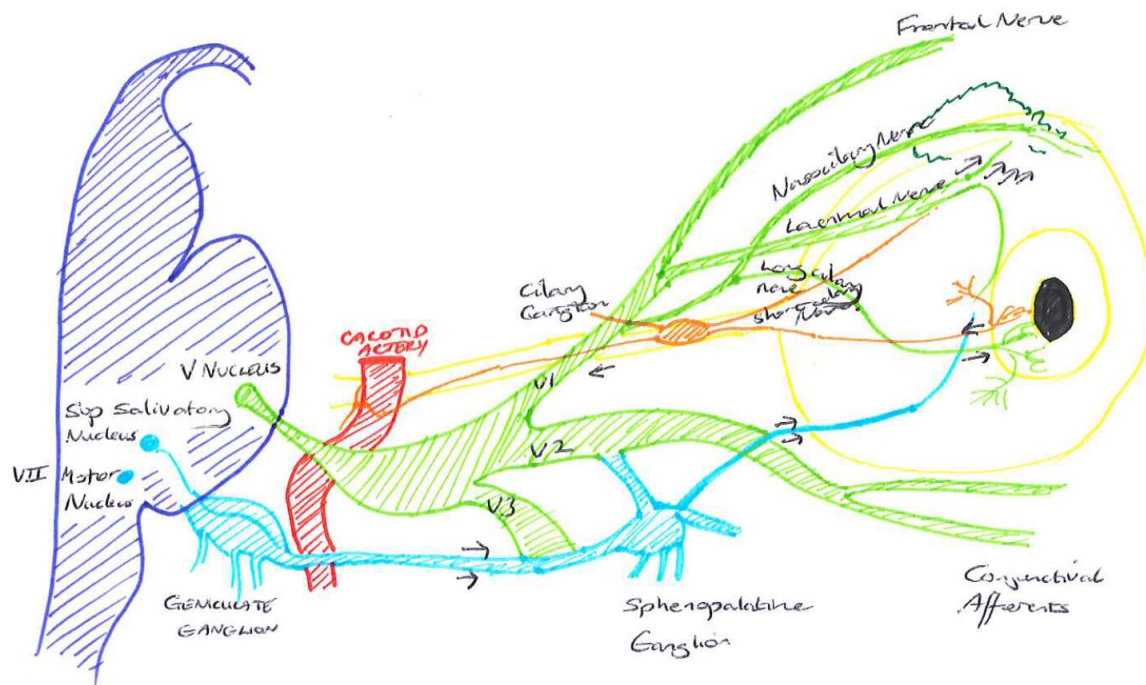 Frontal Nerve
Nasociliary Nerve
Lacrimal Nerve
Long ciliary
nerve
short ciliary
Nerve
Ciliary
Ganglion
CAROTID
ARTERY
V NUCLEUS
V1
Sup Salivatory
Nucleus
V2
VII Motor
Nucleus
V3
GENICULATE
GANGLION
Sphenopalatine
Ganglion
Conjunctival
Afferents